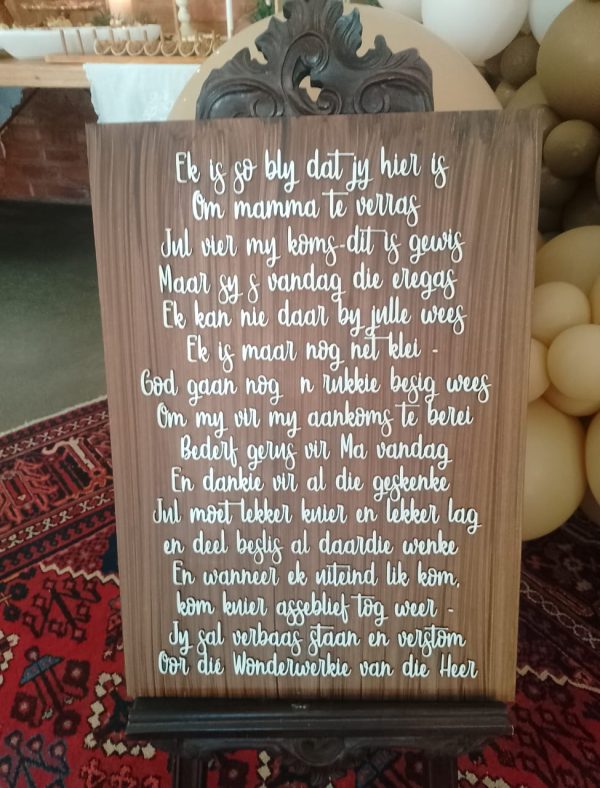 Ek is so bly dat jy hier is
Om mamma te verras
Jul vier my koms-dit is gewis
Maar sy s vandag die eregas
Ek kan nie daar by julle wees
Ek is maar nog net klei -
God gaan nog n rukkie besig wees
Om my vir my aankoms te berei
Bederf gerus vir Ma vandag
En dankie vir al die geskenke
Jul moet lekker kuier en lekker lag
en deel beslis al daardie wenke
En wanneer ek uiteind lik kom,
kom kuier asseblief tog weer -
Jy sal verbaas staan en verstom
Oor dié Wonderwerkie van die Heer